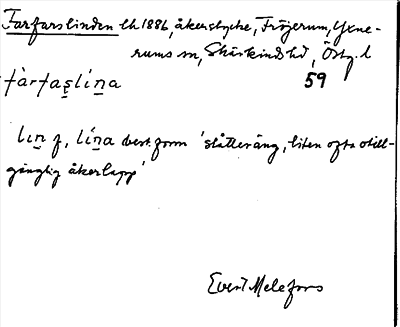 Farfarslinden lh 1886, åkerstycke, Fröjerum, Yxne-
rums sn, Skärkinds hd, Östg. l
fàrfas̨lína 59
lin f, lína best. form 'slåtteräng, liten ofta otill-
gänglig åkerlapp'
Evert Melefors